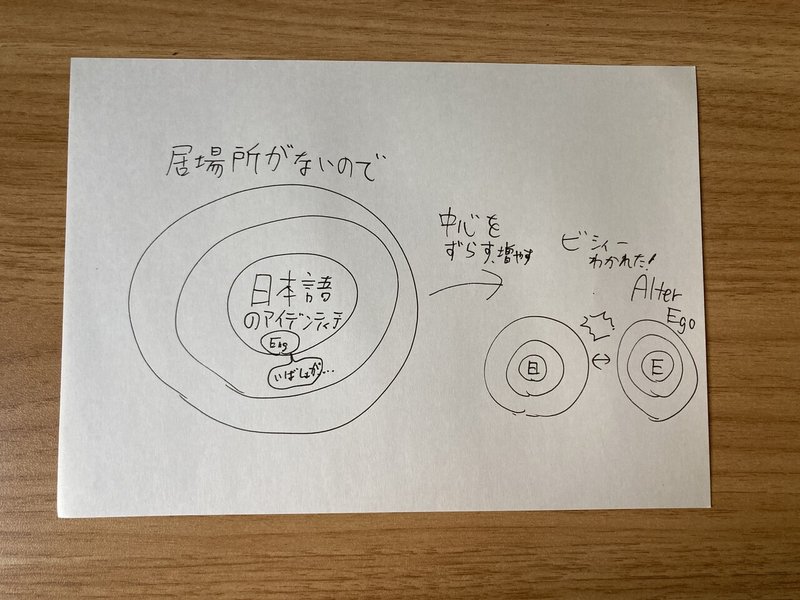 居場所がないので
日本語
のアイデンティテ
Eng
いばしょが…
中心を
ずらす、増やす
ビシィー
わかれた!
Alter
Ego
日
E